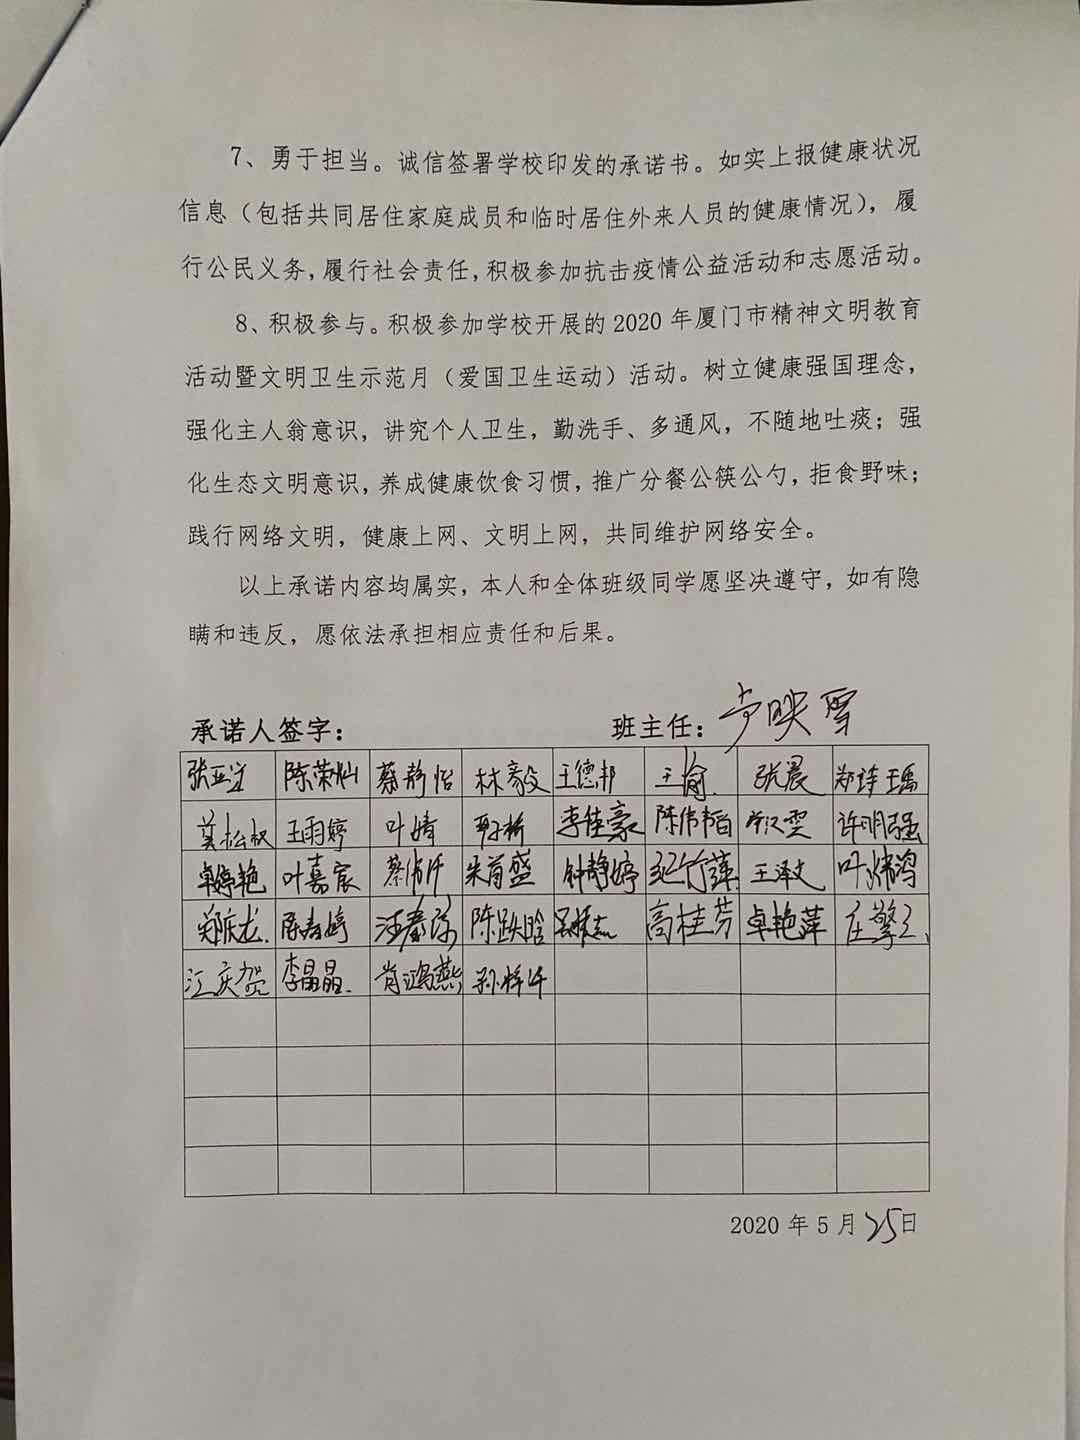 7、勇于担当。诚信签署学校印发的承诺书。如实上报健康状况
信息（包括共同居住家庭成员和临时居住外来人员的健康情况），履
行公民义务，履行社会责任，积极参加抗击疫情公益活动和志愿活动。
8、积极参与。积极参加学校开展的 2020 年厦门市精神文明教育
活动暨文明卫生示范月（爱国卫生运动）活动。树立健康强国理念，
强化主人翁意识，讲究个人卫生，勤洗手、多通风，不随地吐痰；强
化生态文明意识，养成健康饮食习惯，推广分餐公筷公勺，拒食野味；
践行网络文明，健康上网、文明上网，共同维护网络安全。
以上承诺内容均属实，本人和全体班级同学愿坚决遵守，如有隐
瞒和违反，愿依法承担相应责任和后果。
承诺人签字： 班主任：映雪
陈荣灿 蔡静怡 林毅 王德邦 王瑜 张晨
王雨婷 叶婧 李佳豪 陈伟韬 许明强
卓婷艳 叶嘉宸 朱首盛 钟静婷 王泽文 叶炜鸿
郑庆龙 陈春婷 高桂芬 卓艳萍
江庆贺 李晶晶 肖鸿燕
2020 年 5 月 25 日